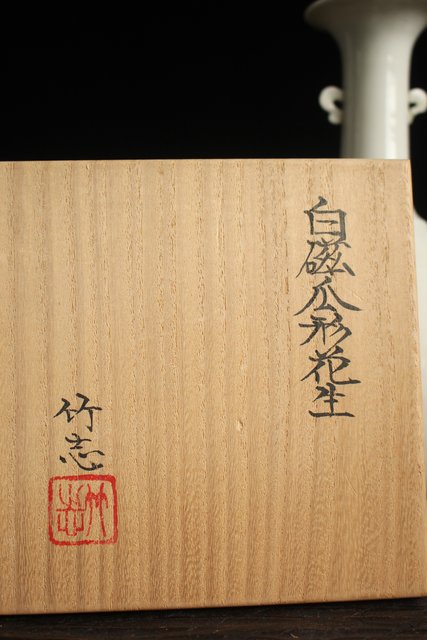 白磁瓜形花生
竹志
竹志